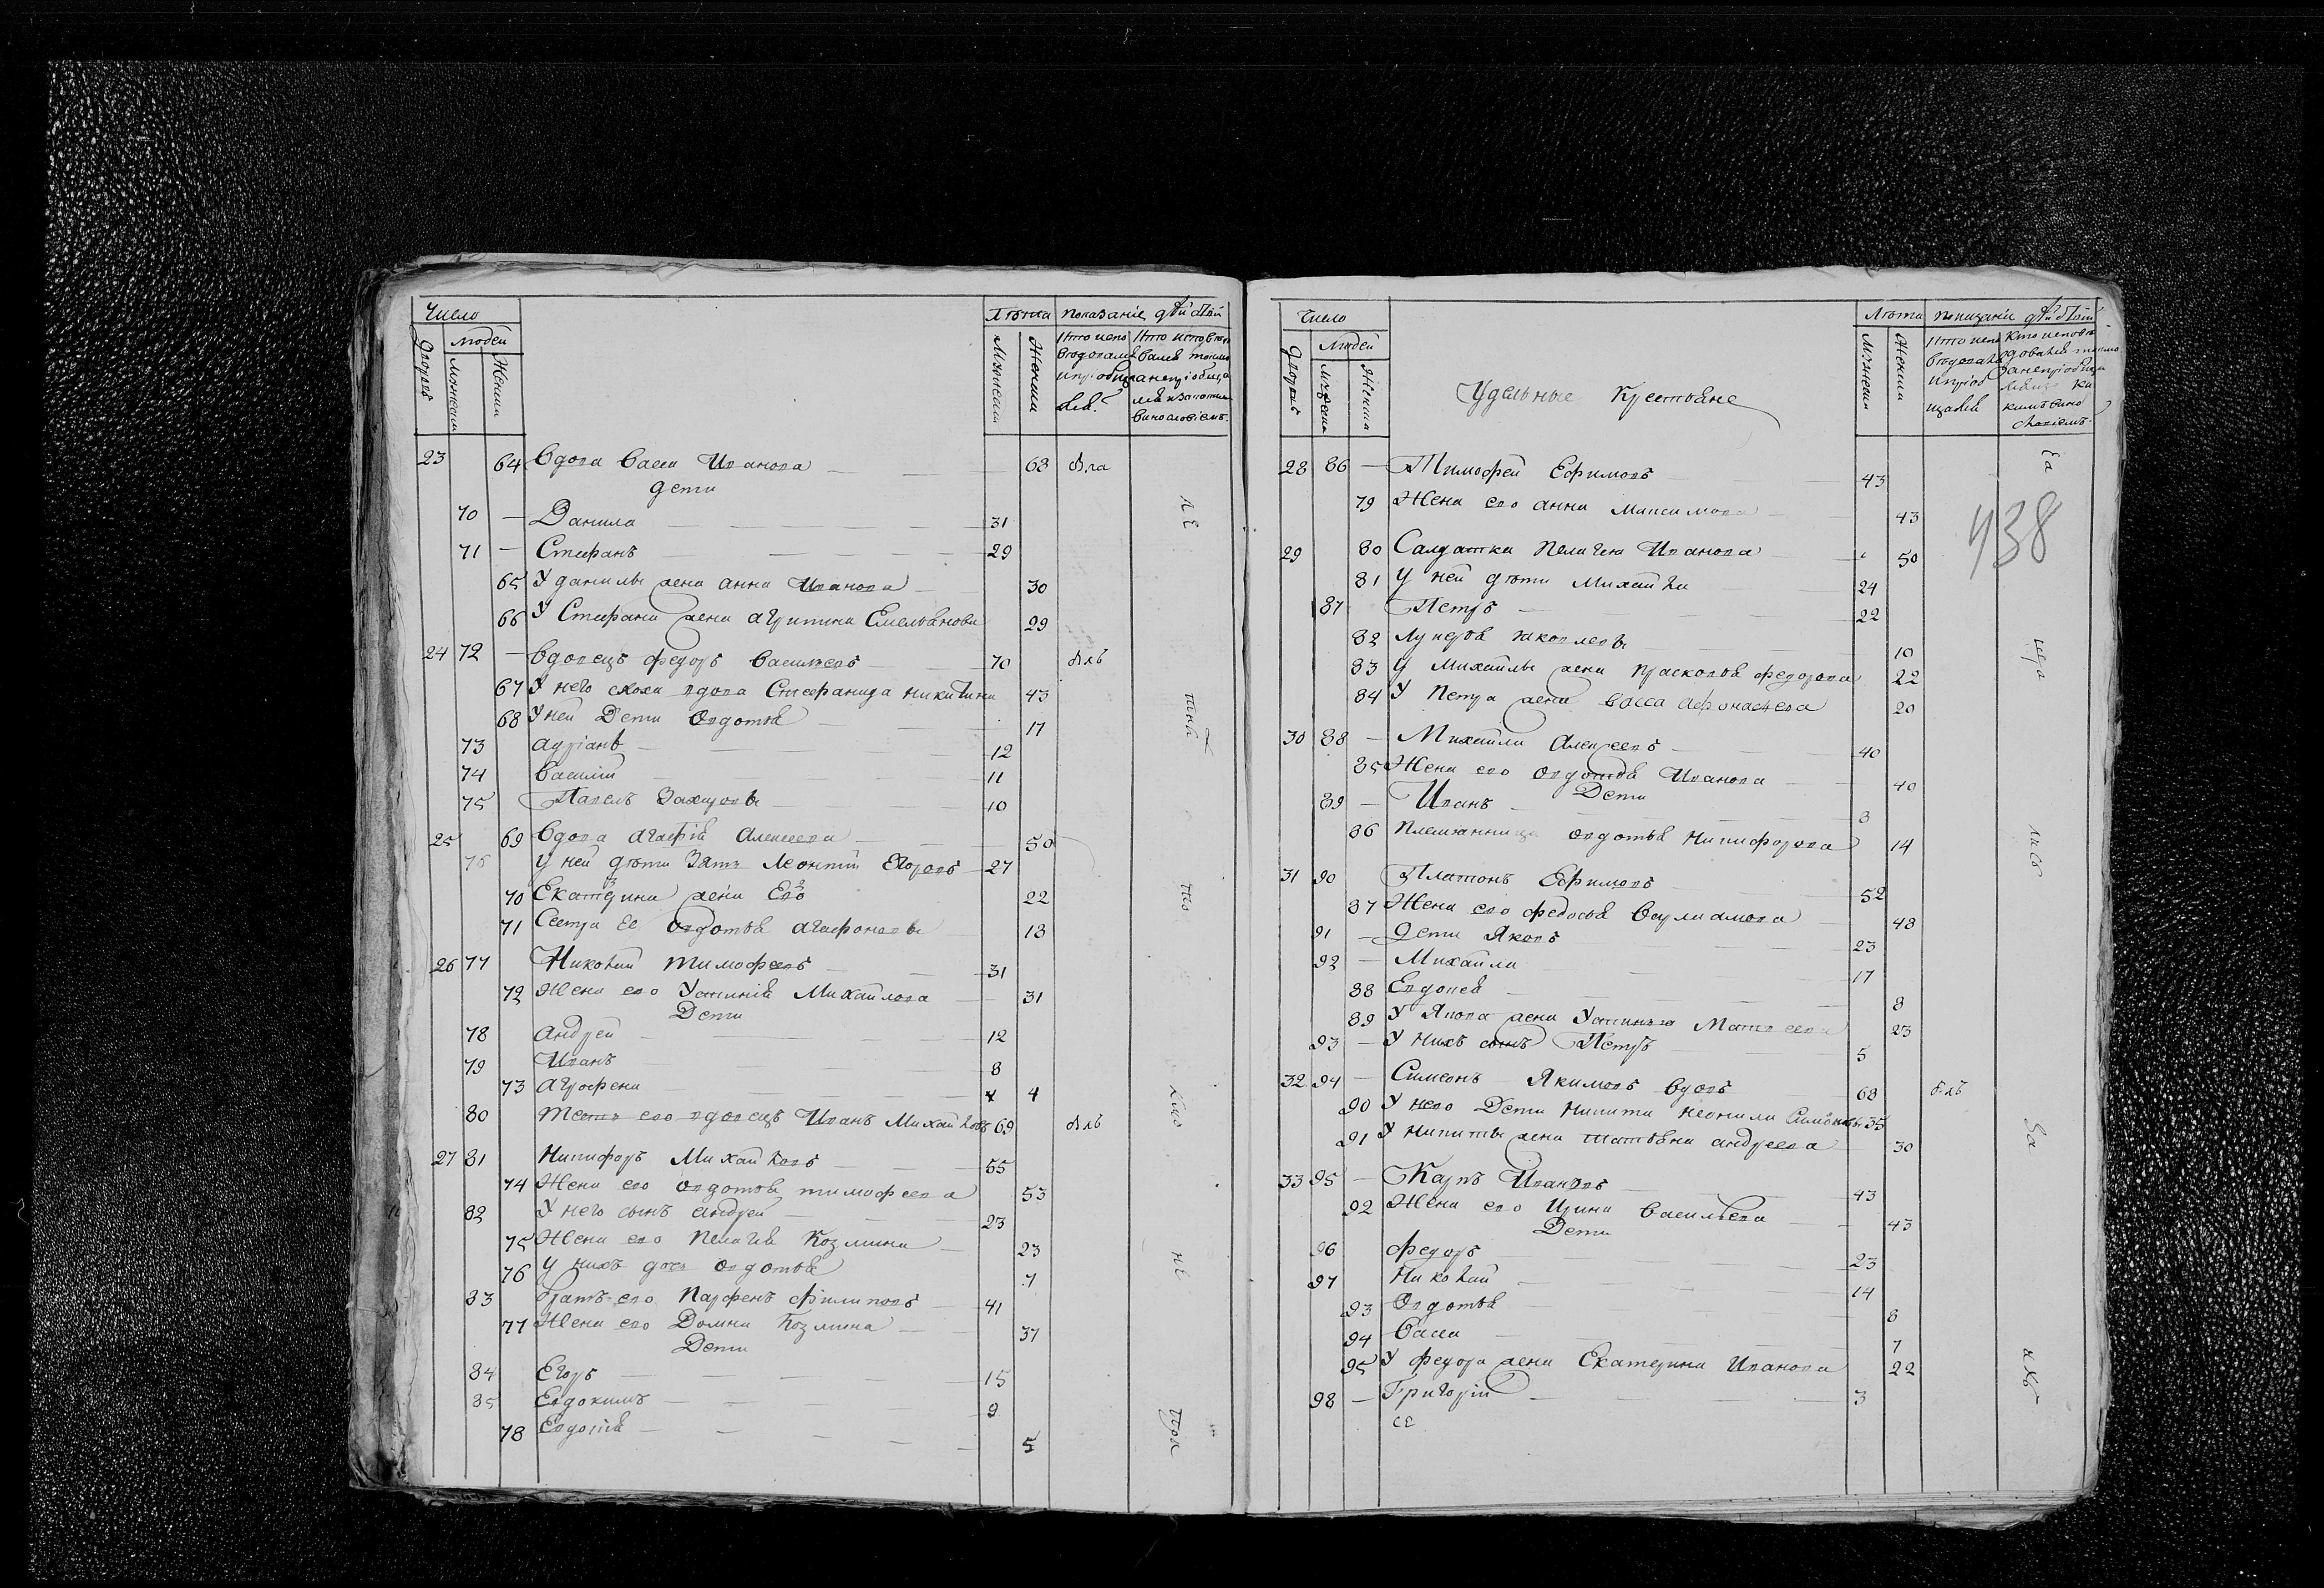 Число
Людей
Дворовъ
Мужеска
Женска
Лѣта
Мужеска
Женска
показаніе дѣйствъ
23 64 Вдова Васса Иванова 68 была
дети
70 Данила 31
71 Стефанъ 29
65 У данилы жена анна Иванова 30
66 У Стефана жена агрипина Емельянова 29
24 72 Вдовецъ федоръ Васильевъ 70 былъ
67 У него сноха вдова Стефанида никитина 43
68 У ней Дети Овдотья 17
73 адріанъ 12
74 Василій 11
75 Павелъ Захаровы 10
25 69 Вдова агафія Алексеева 50
76 у ней дѣти Зять Леонтій Егоровъ 27
70 Екатерина жена Его 22
71 Сестра Ее Овдотья агафонова 13
26 77 Николай тимофеевъ 31
72 Жена ево Устинія Михайлова 31
Дети
78 андрей 12
79 Иванъ 8
73 аграфена 4
80 тесть ево вдовецъ Иванъ Михайловъ 69 былъ
27 81 Никифоръ Михайловъ 55
74 Жена ево Овдотья тимофеева 53
82 У него сынъ андрей 23
75 Жена ево Пелагея Козмина 23
76 у нихъ дочь Овдотья 7
83 братъ ево Парфенъ филиповъ 41
77 Жена ево Домна Козмина 37
Дети
84 Егоръ 15
85 Евдокимъ 9
78 Евдотія 5
Число
Людей
Дворовъ
Мужеска
Женска
Удельные Крестьяне
Лѣта
Мужеска
Женска
показаніе дѣйствъ
438
28 86 Тимофей Ефимовъ 43
79 Жена ево анна Максимова 43
29 80 Салдатка Пелагея Иванова 50
81 у ней дѣти Михайла 24
87 Петръ 22
82 Лукерья яковлевы 10
83 у Михайлы жена Прасковья федорова 22
84 У Петра жена Васса афонасьева 20
30 88 Михайла Алексеевъ 40
85 Жена ево Овдотья Иванова 40
Дети
89 Иванъ 3
86 Племянница Овдотья Никифорова 14
31 90 Платонъ Ефимовъ 52
87 Жена ево федосья Варламова 48
91 Дети Яковъ 23
92 Михайла 17
88 Евдокея 8
89 У Якова жена Устинья Матвеева 23
93 У нихъ сынъ Петръ 5
32 94 Симеонъ Якимовъ вдовъ 68 былъ
90 У него Дети Никита 35
91 У Никиты жена татьяна андреева 30
33 95 Карпъ Ивановъ 43
92 Жена ево Ирина Васильева 43
Дети
96 федоръ 23
97 Николай 14
93 Овдотья 8
94 Васса 7
95 У федора жена Екатерина Иванова 22
98 Григорій 3